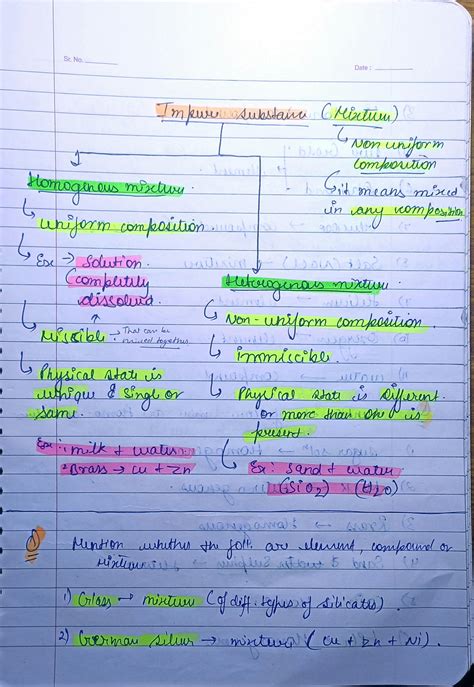 Sr. No.
Date :
Impure substance (Mixture)
↳ Non uniform
composition
↳ it means mixed
in any composition
Homogenous mixture
↳ uniform composition
↳ Ex → Solution.
(completely
dissolved.
↳ Miscible → That can be
mixed together
↳ Physical state is
unique & single or
same.
Ex: 1 milk + water
2 Brass → cu + zn
Heterogenous mixture
↳ Non-uniform composition.
↳ immiscible
↳ Physical state is Different
or more than one is
present.
↳ Ex: Sand + water
(SiO2) (H2O)
Q Mention whether the foll. are element, compound or
Mixture:
1) Glass → mixture (of diff. types of silicates).
2) German silver → mixture (cu + zn + Ni).